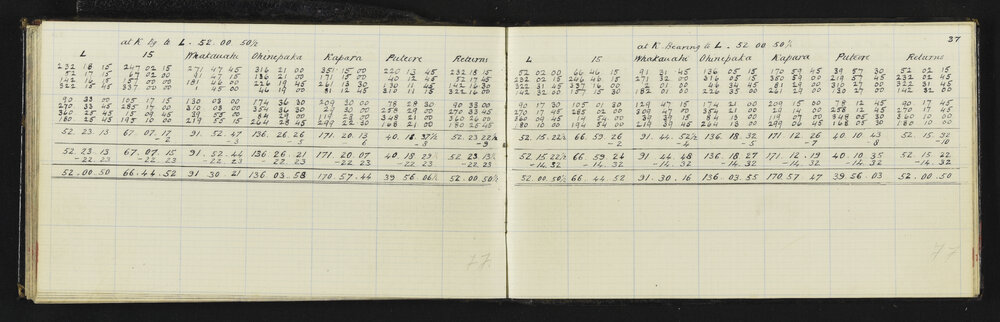 at K Bg to L . 52 . 00 . 50½
L 15 Whakauahi Ohinepaka Kapara Putere Returns
232 18 15 247 02 15 271 47 45 316 21 00 351 15 00 220 13 45 232 18 15
52 17 15 67 02 00 91 47 15 136 21 00 171 15 00 40 12 45 52 17 45
142 16 15 157 00 00 181 46 00 226 19 45 261 13 30 130 11 45 142 16 30
322 15 45 337 00 00 45 00 46 19 00 310 11 15
90 33 00 105 17 15 130 03 00 174 36 30 209 30 00 78 28 30 90 33 00
270 33 45 285 17 00 310 03 00 354 36 30 29 30 00 258 29 00 270 33 45
360 25 45 15 09 45 39 55 00 84 29 00 119 23 00 348 21 00 360 26 00
180 25 45 195 10 00 219 55 15 264 28 45 299 22 30 168 21 00 180 25 45
52 . 23 . 13 67 . 07 . 17 91 . 52 . 47 136 . 26 . 26 171 . 20 . 13 40 . 18 . 37½ 52 23 22½
-2 -3 -5 6 -8 -9
52 . 23 . 13 67 . 07 . 15 91 . 52 . 44 136 . 26 . 21 171 . 20 . 07 40 . 18 29½ 52 23 13½
-22 . 23 -22 . 23 -22 . 23 22 23 -22 23 -22 23 -22 23
52 . 00 . 50 66 . 44 . 52 91 . 30 21 136 . 03 . 58 170 . 57 . 44 39 56 . 06½ 52 . 00 50½
77
37
at K Bearing to L . 52 00 50½
L 15 Whakauahi Ohinepaka Kapara Putere Returns
52 02 00 66 46 15 91 31 45 136 05 15 170 59 45 39 57 30 52 02 15
232 02 15 246 46 15 271 32 00 316 05 15 350 59 00 219 58 15 232 02 45
322 31 45 337 16 00 2 01 00 46 34 45 81 29 00 310 27 00 322 31 45
142 32 00 157 15 30 182 01 00 226 35 00 261 29 00 130 27 00 142 32 00
90 17 30 105 01 30 129 47 15 174 21 00 209 15 00 78 12 45 90 17 45
270 17 45 285 02 00 309 47 00 354 21 00 29 14 00 258 12 45 270 17 45
360 09 45 14 54 00 39 39 15 84 13 00 119 07 00 348 05 30 360 10 00
180 10 00 194 54 00 219 39 45 264 13 00 299 06 45 168 05 30 180 10 00
52 . 15 . 22½ 66 . 59 . 26 91 . 44 . 52½ 136 . 18 . 32 171 . 12 . 26 40 . 10 . 43 52 . 15 . 32
-2 -4 -5 -7 -8 -10
52 . 15 22½ 66 . 59 24 91 . 44 . 48 136 . 18 . 27 171 . 12 . 19 40 . 10 35 52 . 15 . 22
-14 . 32 -14 . 32 -14 . 32 -14 . 32 -14 . 32 -14 . 32 -14 . 32
52 . 00 . 50½ 66 . 44 . 52 91 . 30 . 16 136 . 03 . 55 170 . 57 . 47 39 . 56 . 03 52 . 00 . 50
77